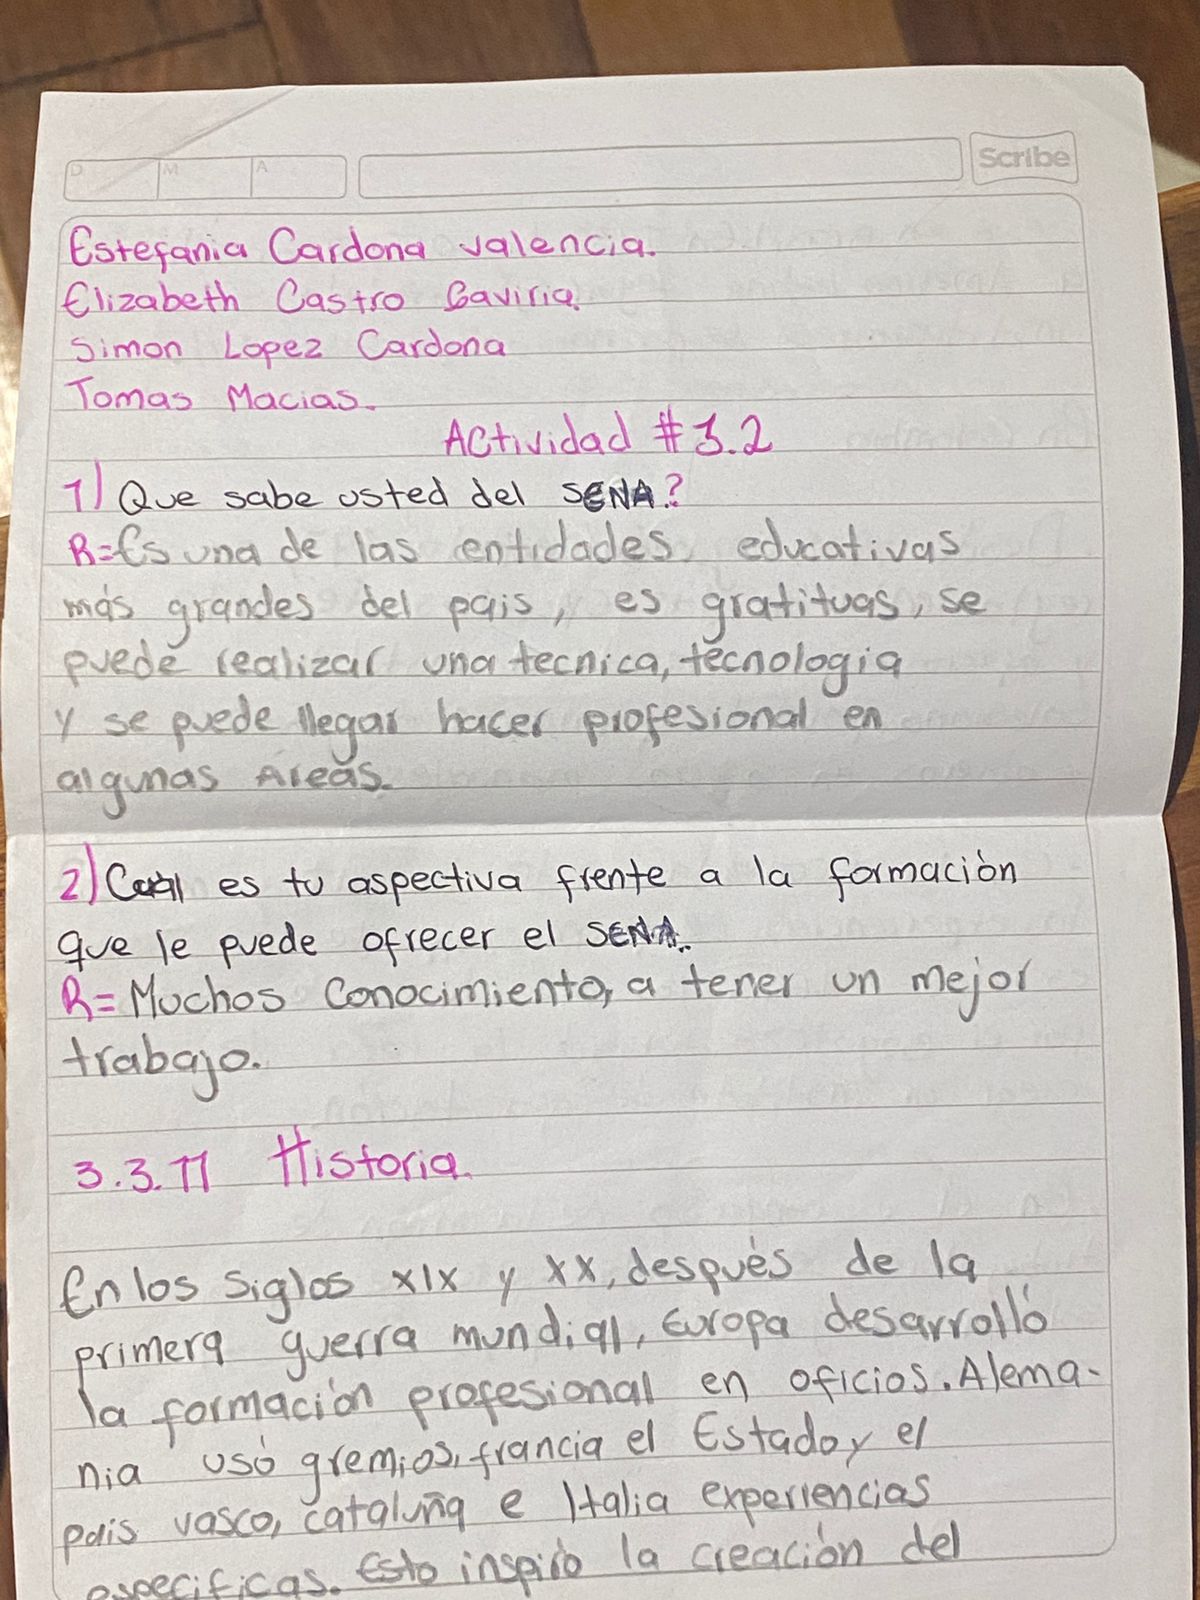 D M A
Scribe
Estefania Cardona valencia.
Elizabeth Castro Gaviria.
Simon Lopez Cardona
Tomas Macias.
Actividad #3.2
1) Que sabe usted del SENA?
R=Es una de las entidades educativas
más grandes del pais, es gratituas, se
puede realizar una tecnica, tecnologia
y se puede llegar hacer profesional en
algunas Areas.
2) Cual es tu aspectiva frente a la formación
que le puede ofrecer el SENA.
R= Muchos Conocimiento, a tener un mejor
trabajo.
3.3.11 Historia.
En los siglos XIX y XX, después de la
primera guerra mundial, Europa desarrolló
la formación profesional en oficios. Alema-
nia usó gremios, francia el Estado y el
pais vasco, cataluña e Italia experiencias
especificas. Esto inspiró la creación del